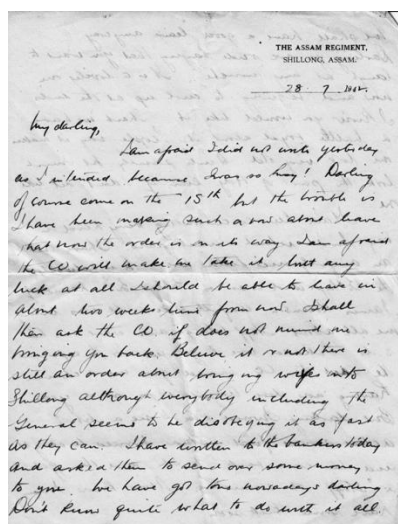 THE ASSAM REGIMENT,
SHILLONG, ASSAM.
28. 7. 1942.
My darling,
I am afraid I did not write yesterday
as I intended because I was so busy! Darling
of course come on the 15th but the trouble is
I have been making such a row about leave
that now the order is on its way I am afraid
the CO will make me take it. With any
luck at all I should be able to leave in
about two weeks time from now I shall
then ask the CO if does not mind me
bringing you back. Believe it or not there is
still an order about bringing wifes into
Shillong although everybody including the
General seems to be disobeying it as fast
as they can. I have written to the bankers today
and asked them to send over some money
to you. We have got tons nowadays darling
Don't know quite what to do with it all.